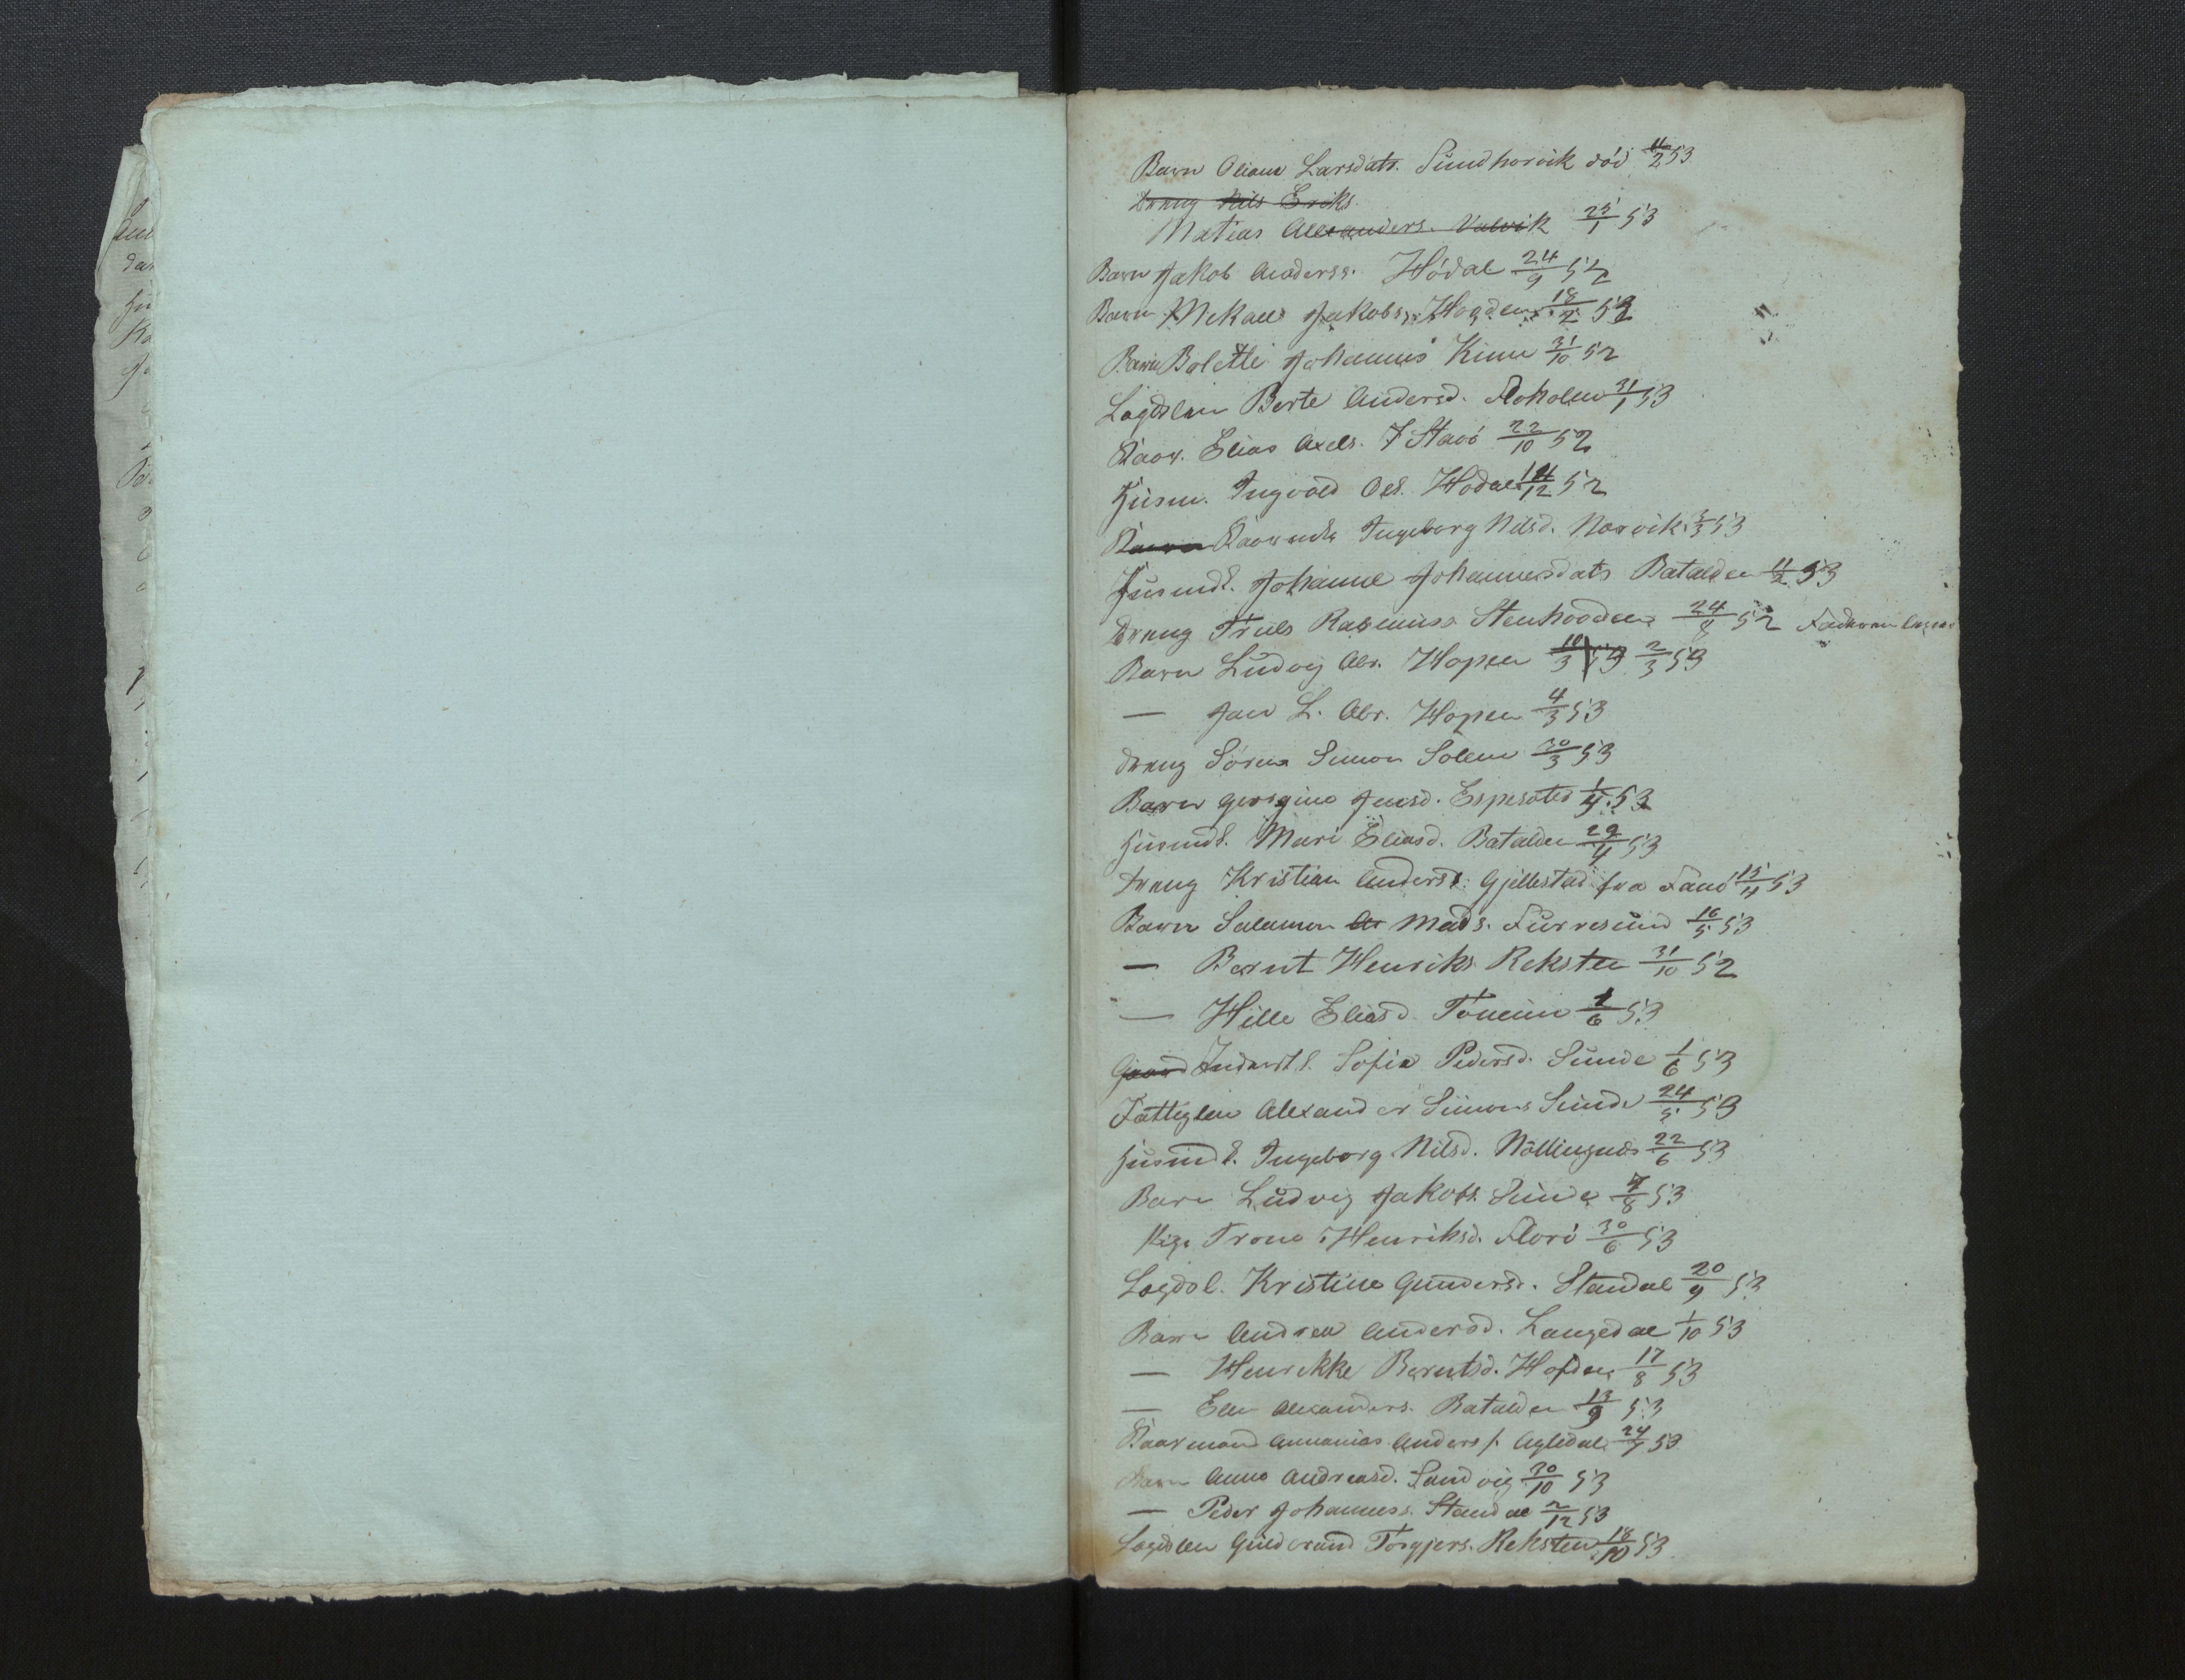 Barn Oliane Larsdatr. Sundhorvik död 11/2 53
Dreng Nils Eriks
Matias Alexanders. Valvik 25/1 53
Barn Jakob Anderss. Hödal 24/9 52
Barn Mekael Jakobs. Hogden 18/2 52
Barn Bolette Johannes Kinn 31/10 52
Lagdslem Berte Andersd. Floholm 31/1 53
Kaar. Elias Axels. Stavö 22/10 52
Husm. Ingvald Ols. Hodal 14/12 52
Kaarenk Ingeborg Nilsd. Norvik 3/3 53
Husmdk. Johanne Johannesdatr Batalden 11/2 53
Dreng Truls Rasmuss Stenhovden 24/8 52
Barn Ludvig Abr. Hopen 10/3 53 2/3 53
— Jan L. Abr. Hopen 4/3 53
dreng Sören Simon Solem 30/3 53
Barn Georgine Jensd. Espesæter 1/4 53
Husmdk. Mari Eliasd. Batalden 29/4 53
Dreng Kristian Anderss. Gjellestad fra Fanö 15/4 53
Barn Salamon Mads. Furresund 16/5 53
— Bernt Henriks Reksten 31/10 52
— Hille Eliasd. 1/6 53
Gaard Inderstk. Sofia Pedersd. Sunde 1/6 53
Fattiglem Alexander Simons Sunde 24/5 53
Husmdk. Ingeborg Nilsd. Nöllingnæs 22/6 53
Barn Ludvig Jakobs. Sunde 7/8 53
Pige Trone Henriksd. Florö 30/6 53
Lagdsl. Kristine Gundersd. Standal 20/9 53
Barn Andrea Andersd. Langedal 1/10 53
— Henrikke Berntsd. Hofden 17/8 53
— Elen Alexanders. Batalden 13/9 53
Kaarmand Annanias Anders s. Agledal 24/7 53
Barn Anne Andreasd. Sandvig 30/10 53
— Peder Johanness. Standal 2/12 53
Lagdslem Guldbrand Torgjers. Reksten 18/10 53